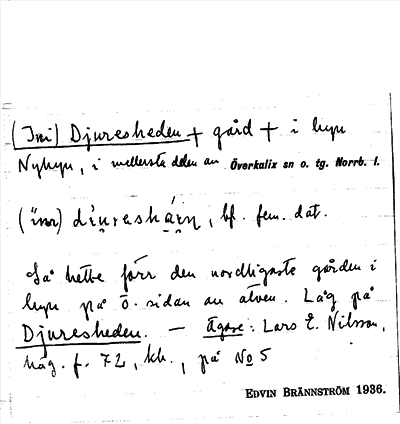 (Ini) Djuresheden + gård + i byn
Nybyn, i mellersta delen av Överkalix sn o. tg. Norrb. l.
(ìnn) diureshá́rn, bf. fem. dat.
Så hette förr den nordligaste gården i
byn på ö. sidan av älven. Låg på
Djuresheden. — Ägare: Lars E. Nilsson,
häg. f. 72, kh., på No 5
EDVIN BRÄNNSTRÖM 1936.